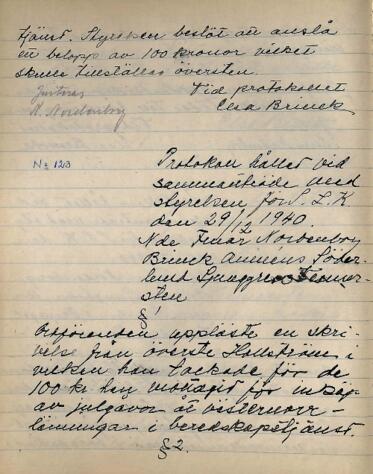 tjänst. Styrelsen beslöt att anslå
ett belopp av 100 kronor vilket
skulle tillställas översten.
Vid protokollet
Justeras
N. Nordenborg
Elsa Brinck
No 123
Protokoll hållet vid
sammanträde med
styrelsen för S. L. K
den 29/2 1940.
N de Fruar Nordenborg
Brinck Amnéus Söder-
lund Ljunggren
sten
§ 1
Ordföranden uppläste en skri-
velse från överste Hallström i
vilken han tackade för de
100 kr han mottagit för inköp
av julgåvor åt västernorr-
länningar i beredskapstjänst.
§ 2.